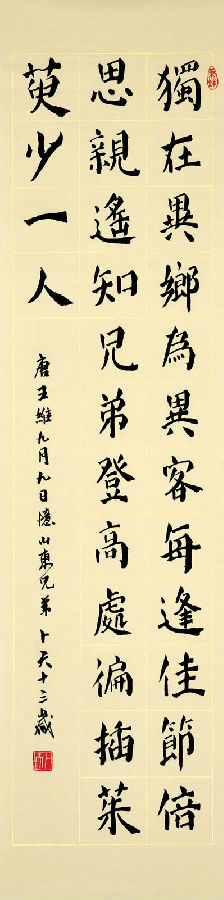 獨在異鄉為異客每逢佳節倍
思親遙知兄弟登高處徧插茱
萸少一人
唐王維九月九日憶山東兄弟 卜天十三歲